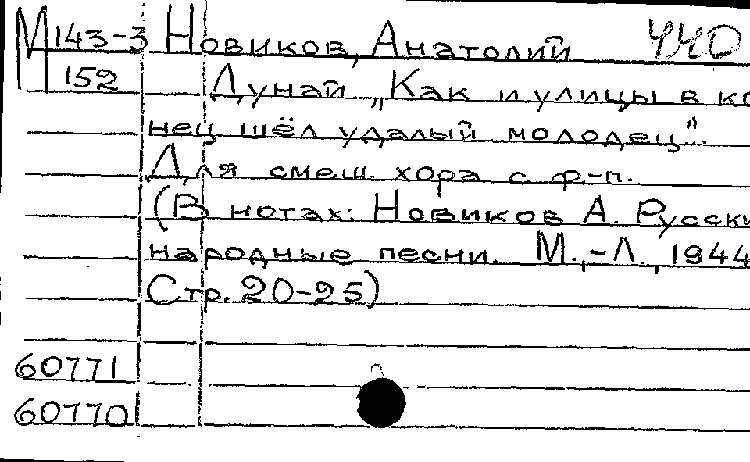 М 143-3 Новиков, Анатолий 440
152 Дунай „Как и улицы в ко
нец шёл удалый молодец".
Для смеш. хора с ф-п.
(В нотах: Новиков А. Русски
народные песни. М.,-Л., 1944
Стр. 20-25)
60771
60770